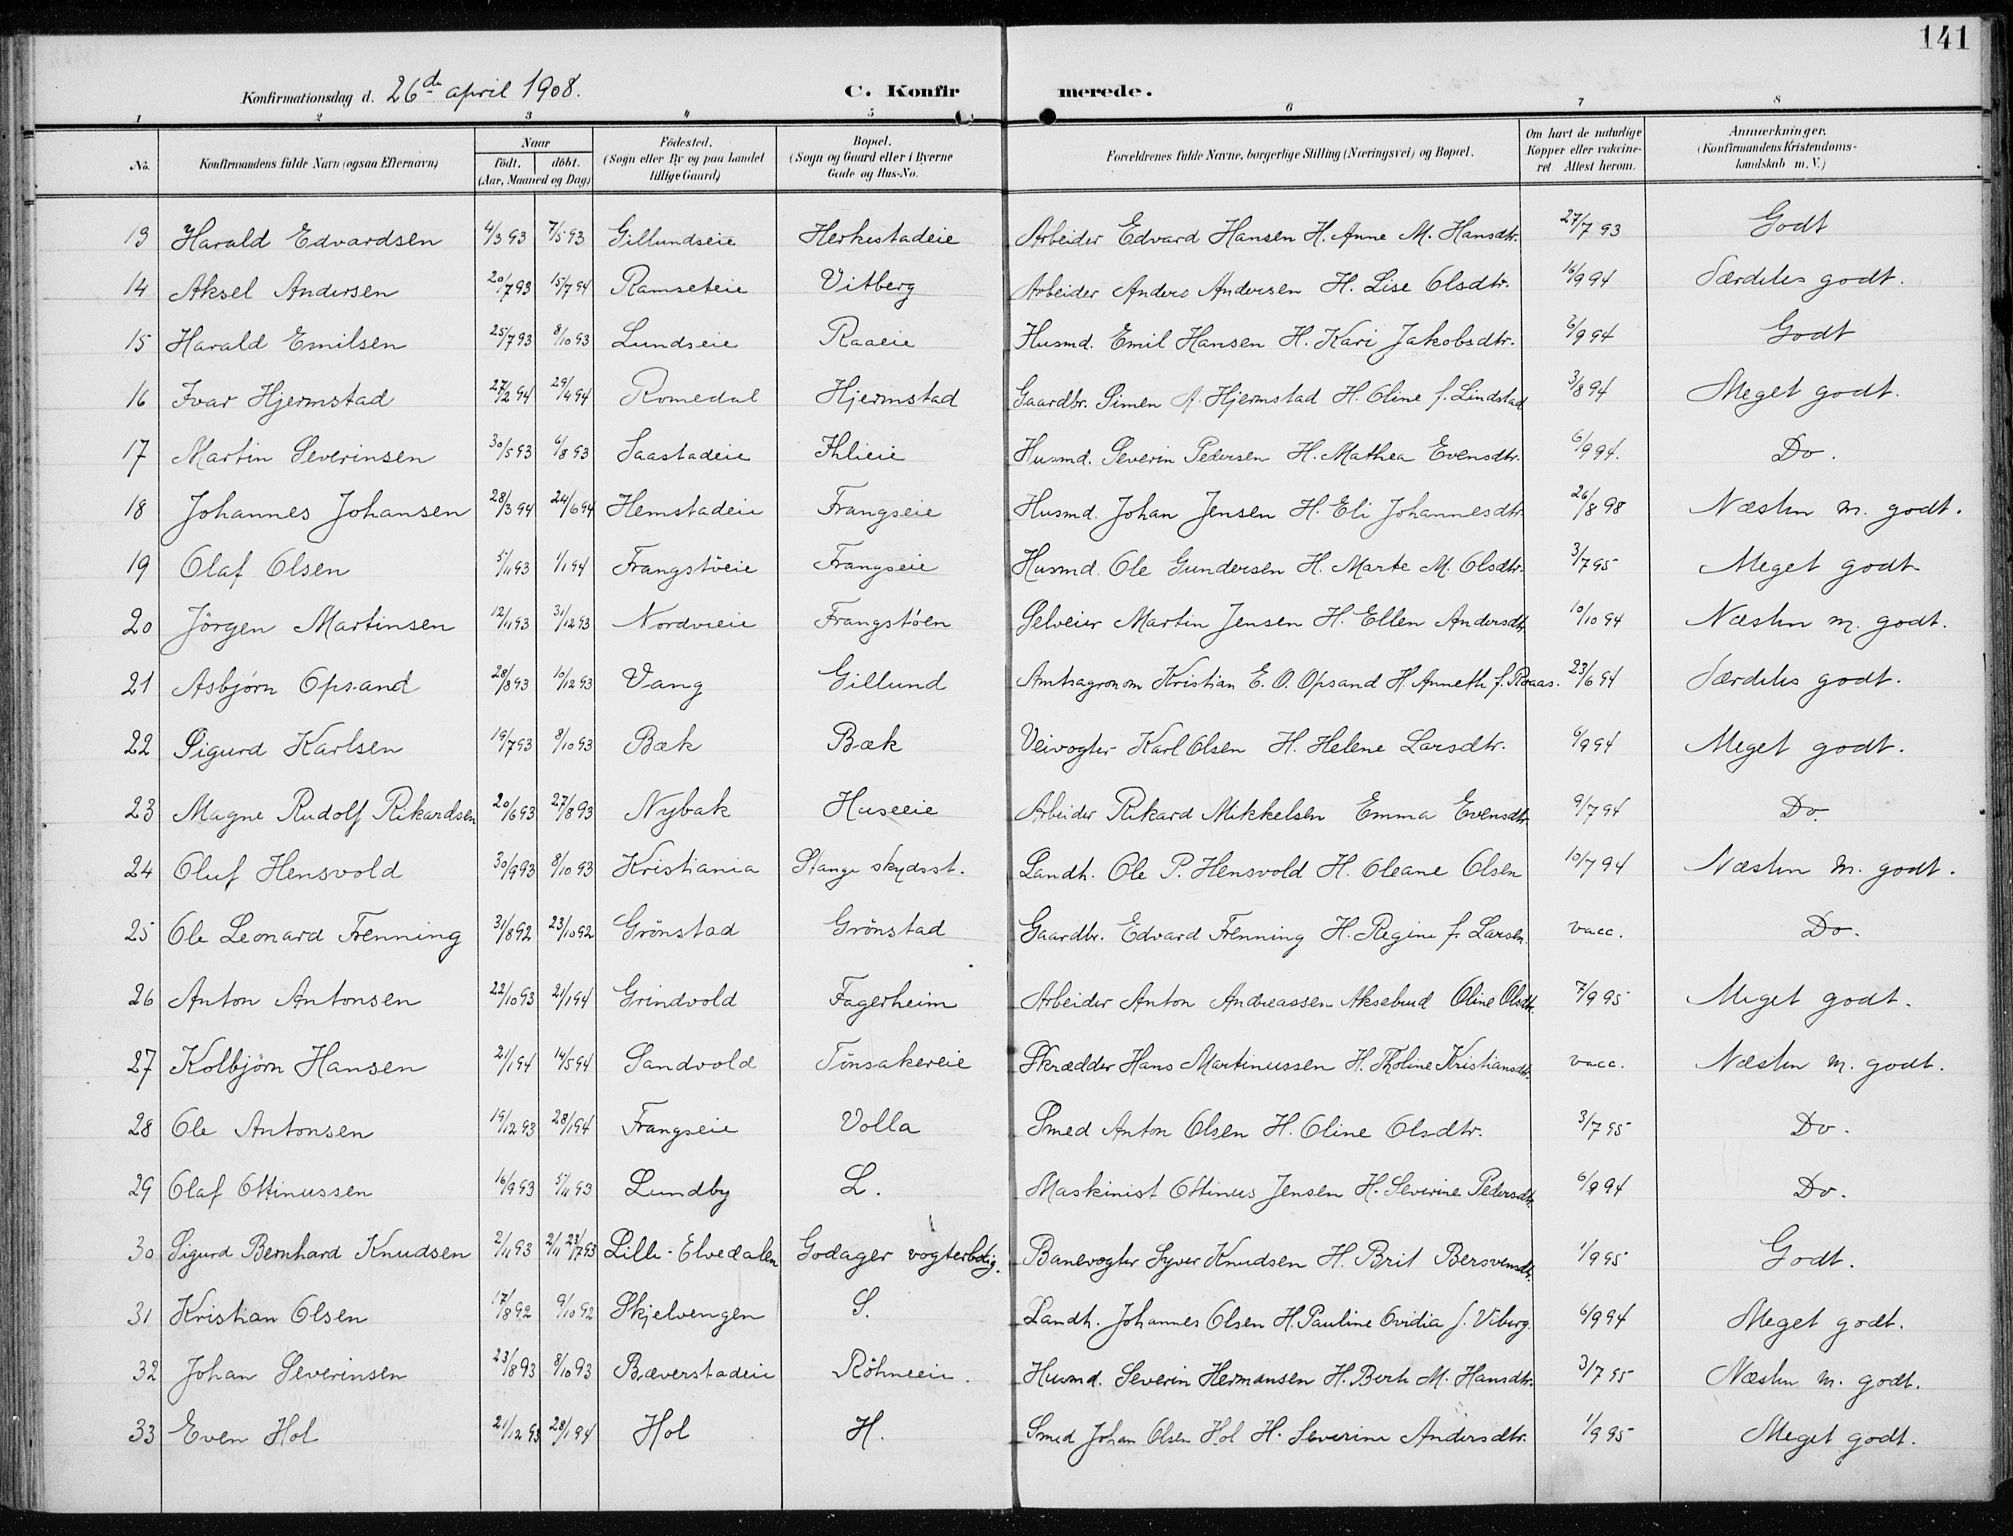 141
Konfirmationsdag d. 26de april 1908. C. Konfirmerede.
1 2 3 4 5 6 7 8
No. Konfirmandens fulde Navn (ogsaa Efternavn) Naar födt. döbt. (Aar, Maaned og Dag) Födested. (Sogn eller By og paa Landet tillige Gaard) Bopæl. (Sogn og Gaard eller i Byerne Gade og Hus-No. Forældrenes fulde Navne, borgerlige Stilling (Næringsvei) og Bopæl. Om havt de naturlige Kopper eller vakcineret Attest herom. Anmærkninger. (Konfirmandens Kristendomskundskab m. V.)
13 Harald Edvardsen 4/3 93 7/5 93 Gillundseie Herkestadeie Arbeider Edvard Hansen H. Anne M. Hansdtr. 27/7 93 Godt
14 Aksel Andersen 20/7 93 15/7 94 Ramseteie Vitberg Arbeider Anders Andersen H. Lise Olsdtr. 16/9 94 Særdeles godt.
15 Harald Emilsen 25/7 93 8/10 93 Lundseie Raaeie Husmd. Emil Hansen H. Kari Jakobsdtr. 6/9 94 Godt
16 Ivar Hjermstad 27/2 94 29/4 94 Romedal Hjermstad Gaardbr. Simen A. Hjermstad H. Oline f. Lindstad 3/8 94 Meget godt.
17 Martin Severinsen 30/5 93 6/8 93 Saastadeie Ihlieie Husmd. Severin Pedersen H. Mathea Evensdtr. 6/9 94. Do.
18 Johannes Johansen 28/3 94 24/6 94 Hemstadeie Frangseie Husmd. Johan Jensen H. Eli Johannesdtr. 26/8 98 Næsten m. godt.
19 Olaf Olsen 5/11 93 1/1 94 Frangstöeie Frangseie Husmd. Ole Gundersen H. Marte M. Olsdtr. 3/7 95 Meget godt
20 Jörgen Martinsen 12/11 93 31/12 93 Nordvieie Frangstöen Selveier Martin Jensen H. Ellen Andersdtr. 10/10 94 Næsten m. godt.
21 Asbjørn Opsand 28/8 93 10/12 93 Vang Gillund Amtsagronom Kristian E. O. Opsand H. Anneth f. Raaas. 23/6 94 Særdeles godt.
22 Sigurd Karlsen 19/7 93 8/10 93 Bæk Bæk Veivogter Karl Olsen H. Helene Larsdtr. 6/9 94 Meget godt.
23 Magne Rudolf Rikardsen 20/6 93 27/8 93 Nybak Huseeie Arbeider Rikard Mikkelsen Emma Evensdtr. 9/7 94 Do.
24 Oluf Hensvold 30/9 93 8/10 93 Kristiania Stange skydsst. Landh. Ole P. Hensvold H. Oleane Olsen 10/7 94 Næsten m. godt.
25 Ole Leonard Frenning 31/8 92 23/10 92 Grönstad Grönstad Gaardbr. Edvard Frenning H. Regine f. Larsen. vacc. Do.
26 Anton Antonsen 22/10 93 21/1 94 Grindvold Fagerheim Arbeider Anton Andreassen Aksebud Oline Olsdtr. 7/9 95 Meget godt.
27 Kolbjörn Hansen 21/1 94 14/5 94 Sandvold Tönsakereie Skrædder Hans Martinussen H. Tholine Kristiansdtr. vacc. Næsten m. godt.
28 Ole Antonsen 19/12 93 28/1 94 Frangseie Volla Smed Anton Olsen H. Oline Olsdtr. 3/7 95 Do.
29 Olaf Ottinussen 16/9 93 5/11 93 Lundby L. Maskinist Ottinus Jensen H. Severine Pedersdtr. 6/9 94 Do.
30 Sigurd Bernhard Knudsen 2/11 93 2/11 23/7 93 Lille-Elvedalen Godager vogterbolig. Banevogter Syver Knudsen H. Brit Bersvensdtr. 1/9 95 Godt.
31 Kristian Olsen 17/8 92 9/10 92 Skjelvengen S. Landh. Johannes Olsen H. Pauline Ovidia f. Viberg. 6/9 94 Meget godt.
32 Johan Severinsen 23/8 93 8/10 93 Bæverstadeie Röhneeie. Husmd. Severin Hermansen H. Berte M. Hansdtr. 3/7 95 Næsten m. godt.
33 Even Hol 21/12 93 28/1 94 Hol H. Smed Johan Olsen Hol H. Severine Andersdtr. 1/9 95 Meget godt.